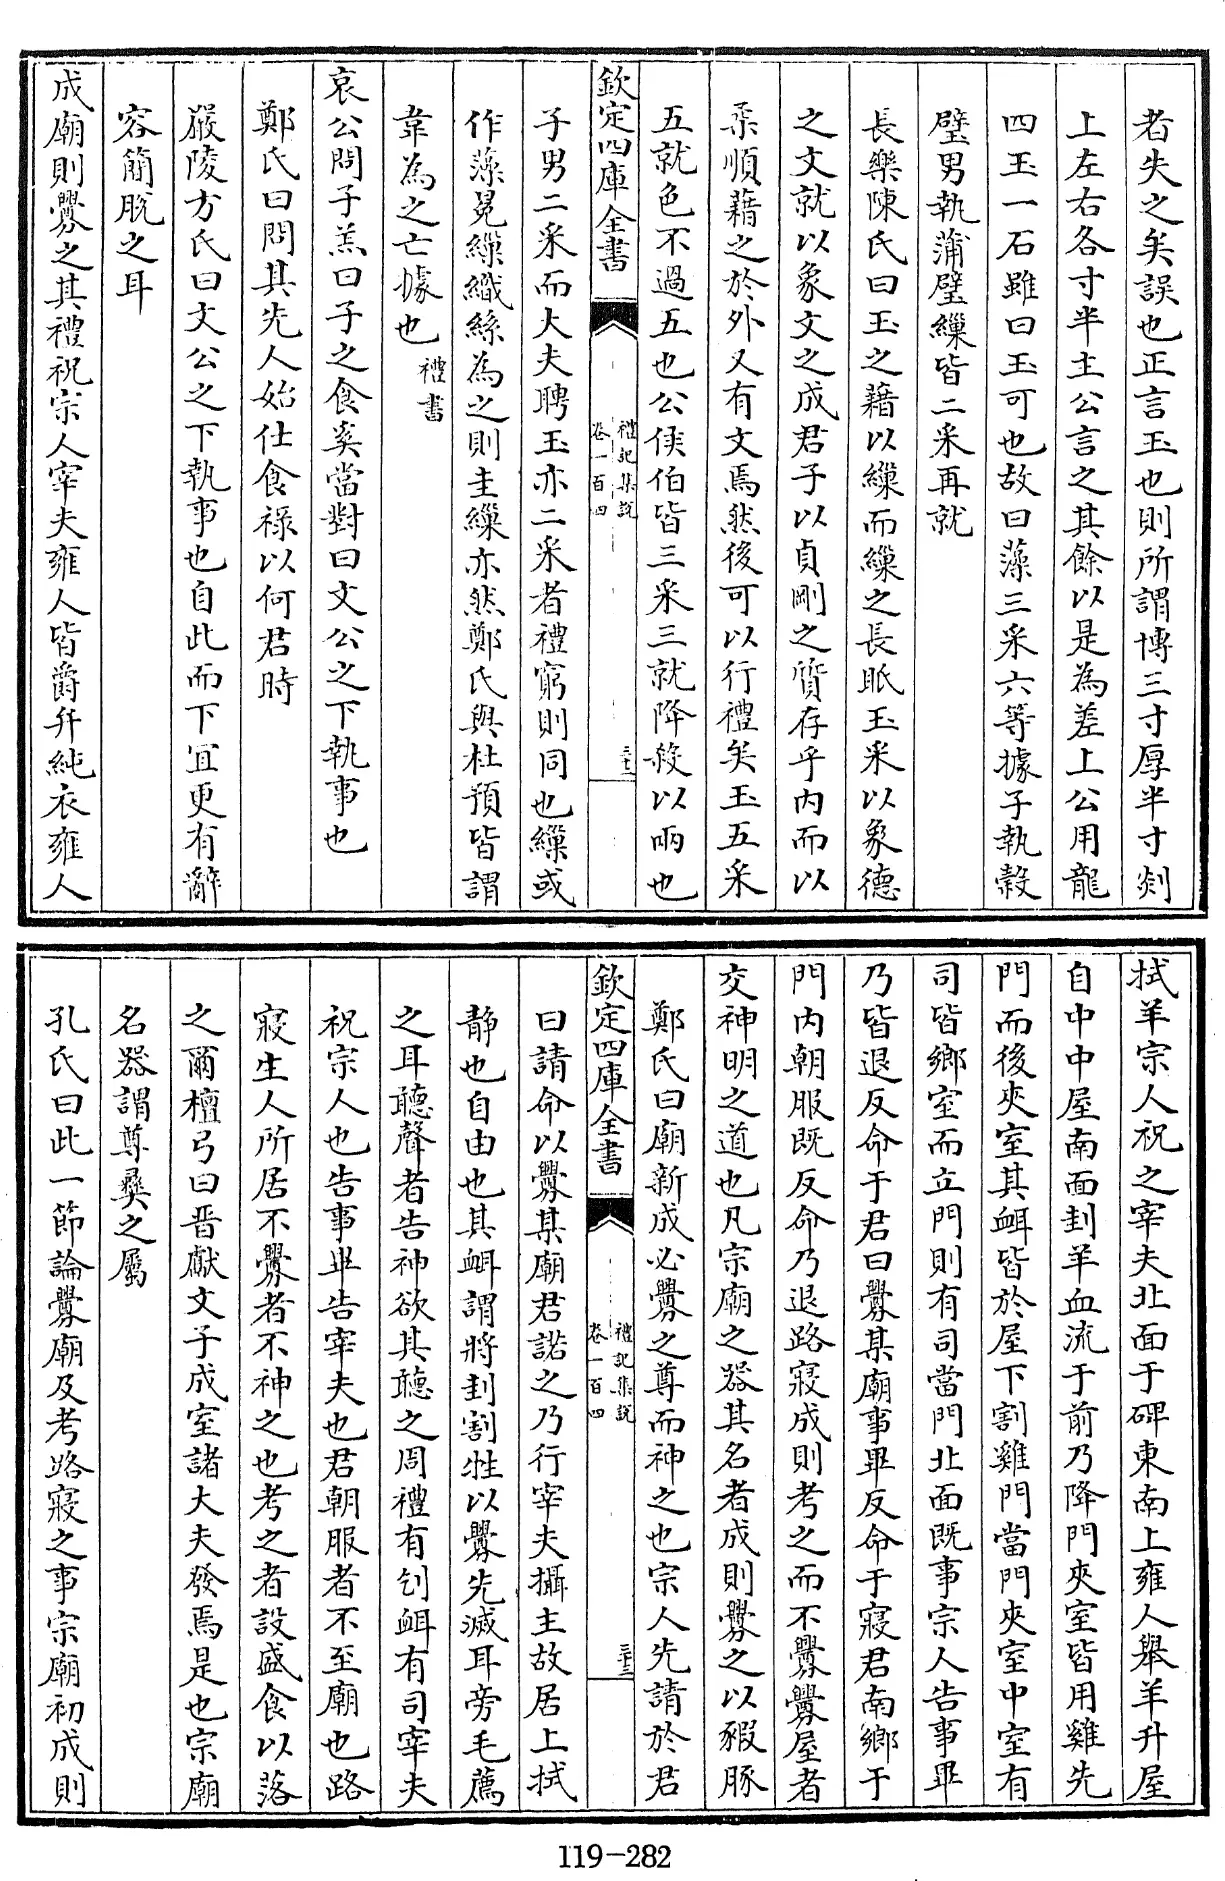 者失之矣誤也正言玉也則所謂博三寸厚半寸剡
上左右各寸半主公言之其餘以是為差上公用龍
四玉一石雖曰玉可也故曰藻三采六等據子執穀
璧男執蒲璧繅皆二采再就
長樂陳氏曰玉之藉以繅而繅之長眡玉采以象德
之文就以象文之成君子以貞剛之質存乎内而以
柔順藉之於外又有文焉然後可以行禮矣玉五采
五就色不過五也公侯伯皆三采三就降殺以兩也
欽定四庫全書
禮記集說
卷一百四
三十二
子男二采而大夫聘玉亦二采者禮窮則同也繅或
作藻冕繅織絲為之則圭繅亦然鄭氏與杜預皆謂
韋為之亡據也禮書
哀公問子羔曰子之食奚當對曰文公之下執事也
鄭氏曰問其先人始仕食祿以何君時
嚴陵方氏曰文公之下執事也自此而下宜更有辭
容簡脫之耳
成廟則釁之其禮祝宗人宰夫雍人皆爵弁純衣雍人
拭羊宗人祝之宰夫北面于碑東南上雍人舉羊升屋
自中中屋南面刲羊血流于前乃降門夾室皆用雞先
門而後夾室其衈皆於屋下割雞門當門夾室中室有
司皆鄉室而立門則有司當門北面既事宗人告事畢
乃皆退反命于君曰釁某廟事畢反命于寢君南鄉于
門内朝服既反命乃退路寢成則考之而不釁釁屋者
交神明之道也凡宗廟之器其名者成則釁之以豭豚
鄭氏曰廟新成必釁之尊而神之也宗人先請於君
欽定四庫全書
禮記集說
卷一百四
三十三
曰請命以釁某廟君諾之乃行宰夫攝主故居上拭
静也自由也其衈謂將刲割牲以釁先滅耳旁毛薦
之耳聽聲者告神欲其聽之周禮有刉衈有司宰夫
祝宗人也告事畢告宰夫也君朝服者不至廟也路
寢生人所居不釁者不神之也考之者設盛食以落
之爾檀弓曰晋獻文子成室諸大夫發焉是也宗廟
名器謂尊彝之屬
孔氏曰此一節論釁廟及考路寢之事宗廟初成則
119-282